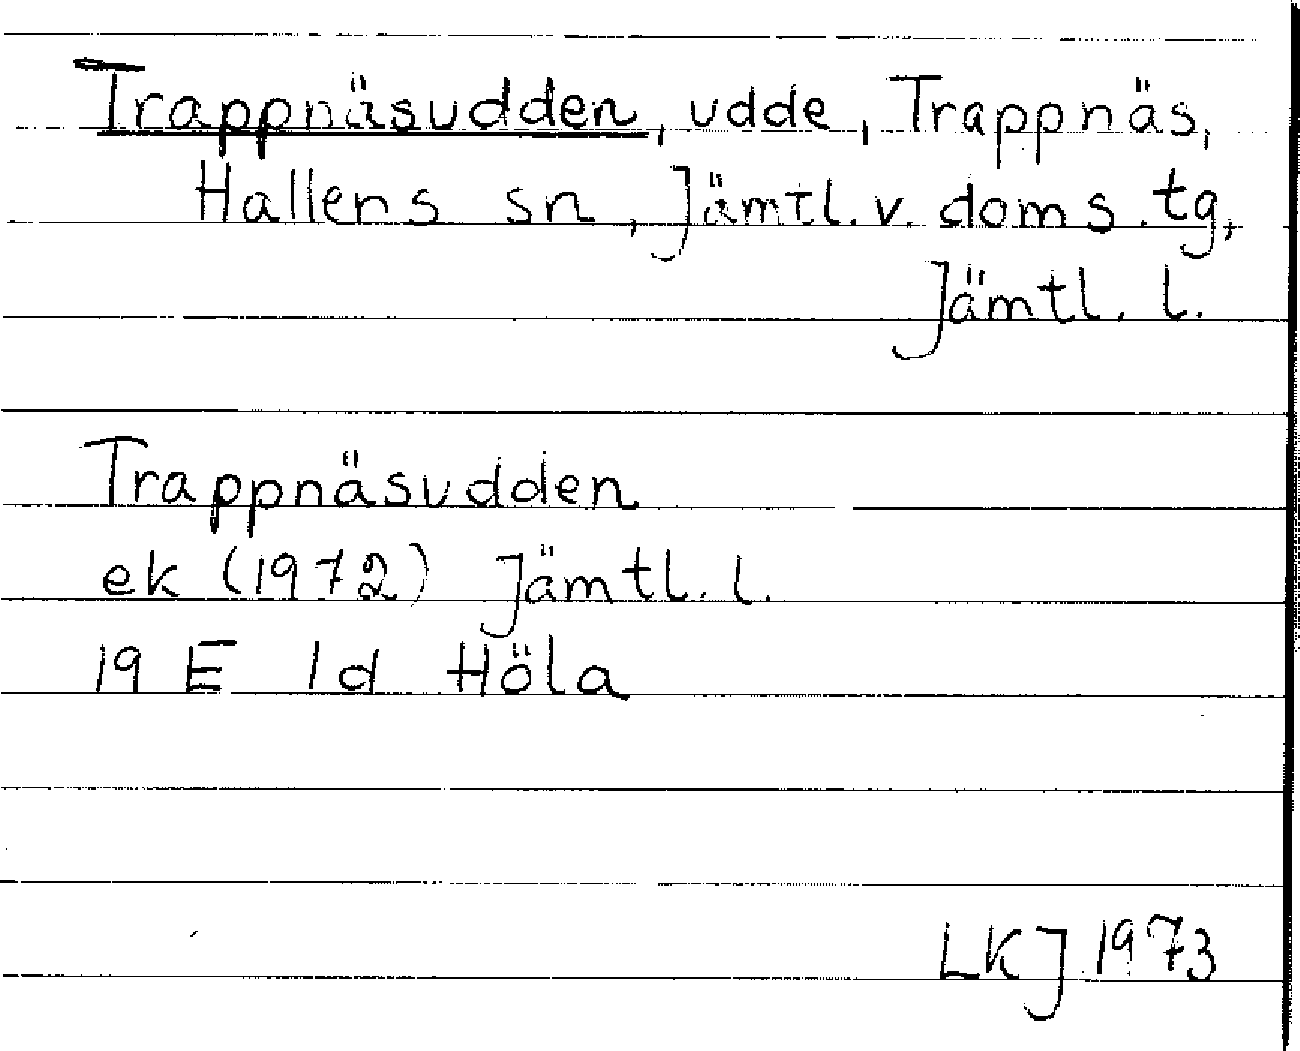 Trappnäsudden, udde, Trappnäs,
Hallens sn, Jämtl. v. doms. tg,
Jämtl. l.
Trappnäsudden
ek (1972) Jämtl. l.
19 E 1d Höla
LKJ 1973